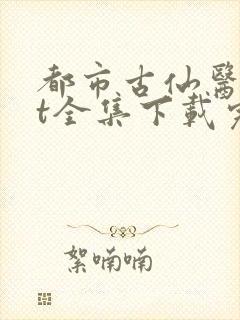 都市古仙醫
t全集下載
絮喃喃